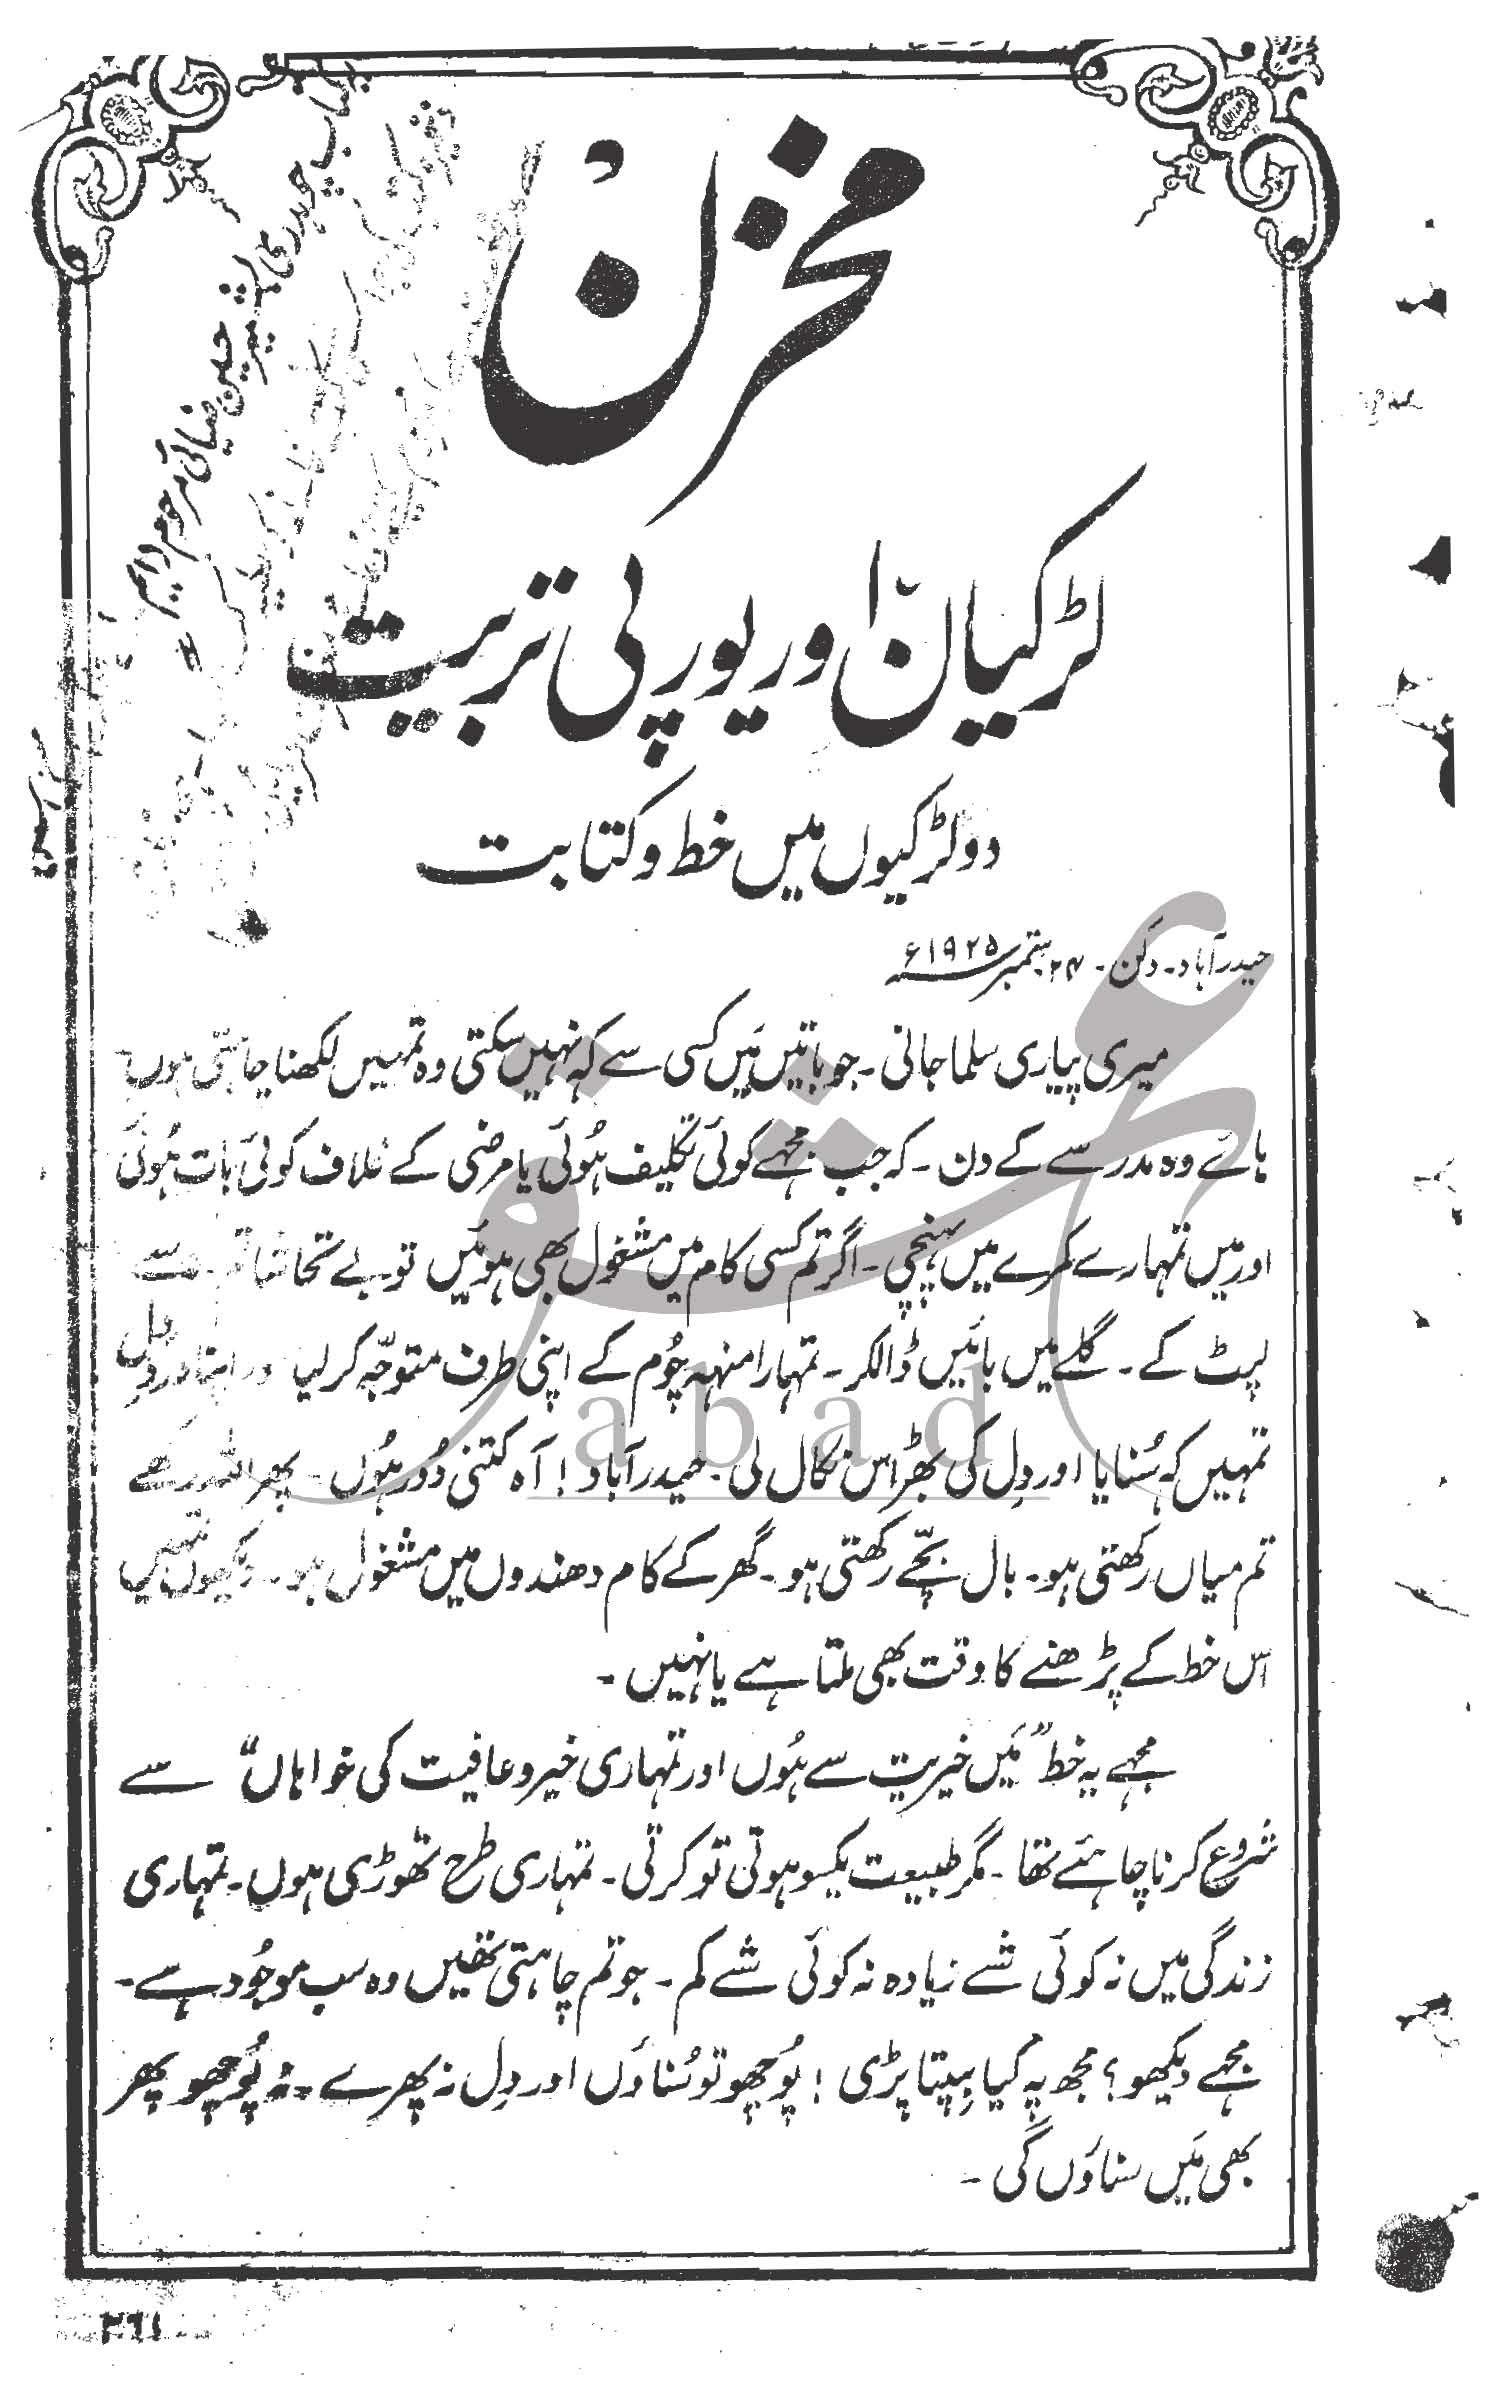 مخزن
لڑکیاں اور یورپی تربیت
دو لڑکیوں میں خط و کتابت
حیدرآباد۔ دکن۔ ۲۴ ستمبر ۱۹۲۵ء
میری پیاری سلما جانی۔ جو باتیں مَیں کسی سے کہ نہیں سکتی وہ تمہیں لکھنا چاہتی ہوں
ہائے وہ مدرسے کے دن۔ کہ جب مجھے کوئی تکلیف ہُوئی یا مرضی کے خلاف کوئی بات ہُوئی
اور میں تمہارے کمرے میں پہنچی۔ اگر تم کسی کام میں مشغول بھی ہوئیں تو بے تحاشا تم سے
لپٹ کے۔ گلے میں بانہیں ڈالکر۔ تمہارا منہہ چُوم کے اپنی طرف متوجّہ کر لیا اور اپنا دردِ دل
تمہیں کہ سُنایا اور دِل کی بھڑاس نکال لی۔ حیدرآباد! آہ کتنی دُور ہُوں۔ پھر اللہ رکھے
تم میاں رکھتی ہو۔ بال بچّے رکھتی ہو۔ گھر کے کام دھندوں میں مشغول ہو۔ دیکھوں تمہیں
اس خط کے پڑھنے کا وقت بھی ملتا ہے یا نہیں۔
مجھے یہ خط "مَیں خیریت سے ہُوں اور تمہاری خیر و عافیت کی خواہاں" سے
شروع کرنا چاہئے تھا۔ مگر طبیعت یکسو ہوتی تو کرتی۔ تمہاری طرح تھوڑی ہوں۔ تمہاری
زندگی میں نہ کوئی شے زیادہ نہ کوئی شے کم۔ جو تم چاہتی تھیں وہ سب موجُود ہے۔
مجھے دیکھو؟ مجھ پہ کیا بِپتا پڑی! پُوچھو تو سُناؤں اور دِل نہ پھرے۔ نہ پُوچھو پھر
بھی مَیں سناؤں گی۔
۲۶۱
abad